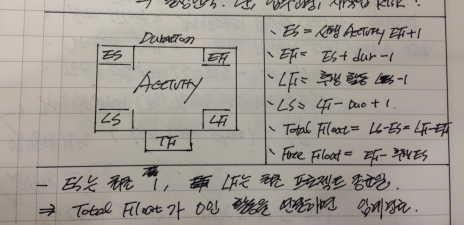 Duration
ES
EFi
Activity
LS
LFi
TFi
ES = 선행 Activity EFi+1
EFi = ES + dur - 1
LFi = 후행 활동 LS - 1
LS = LFi - Duo + 1.
Total Float = LS-ES = LFi-EFi
Free Float = EFi - 후행 ES
- ES는 최초 1, LFi는 최종 프로젝트 종료일.
⇒ Total Float가 0인 활동을 연결하면 임계경로.